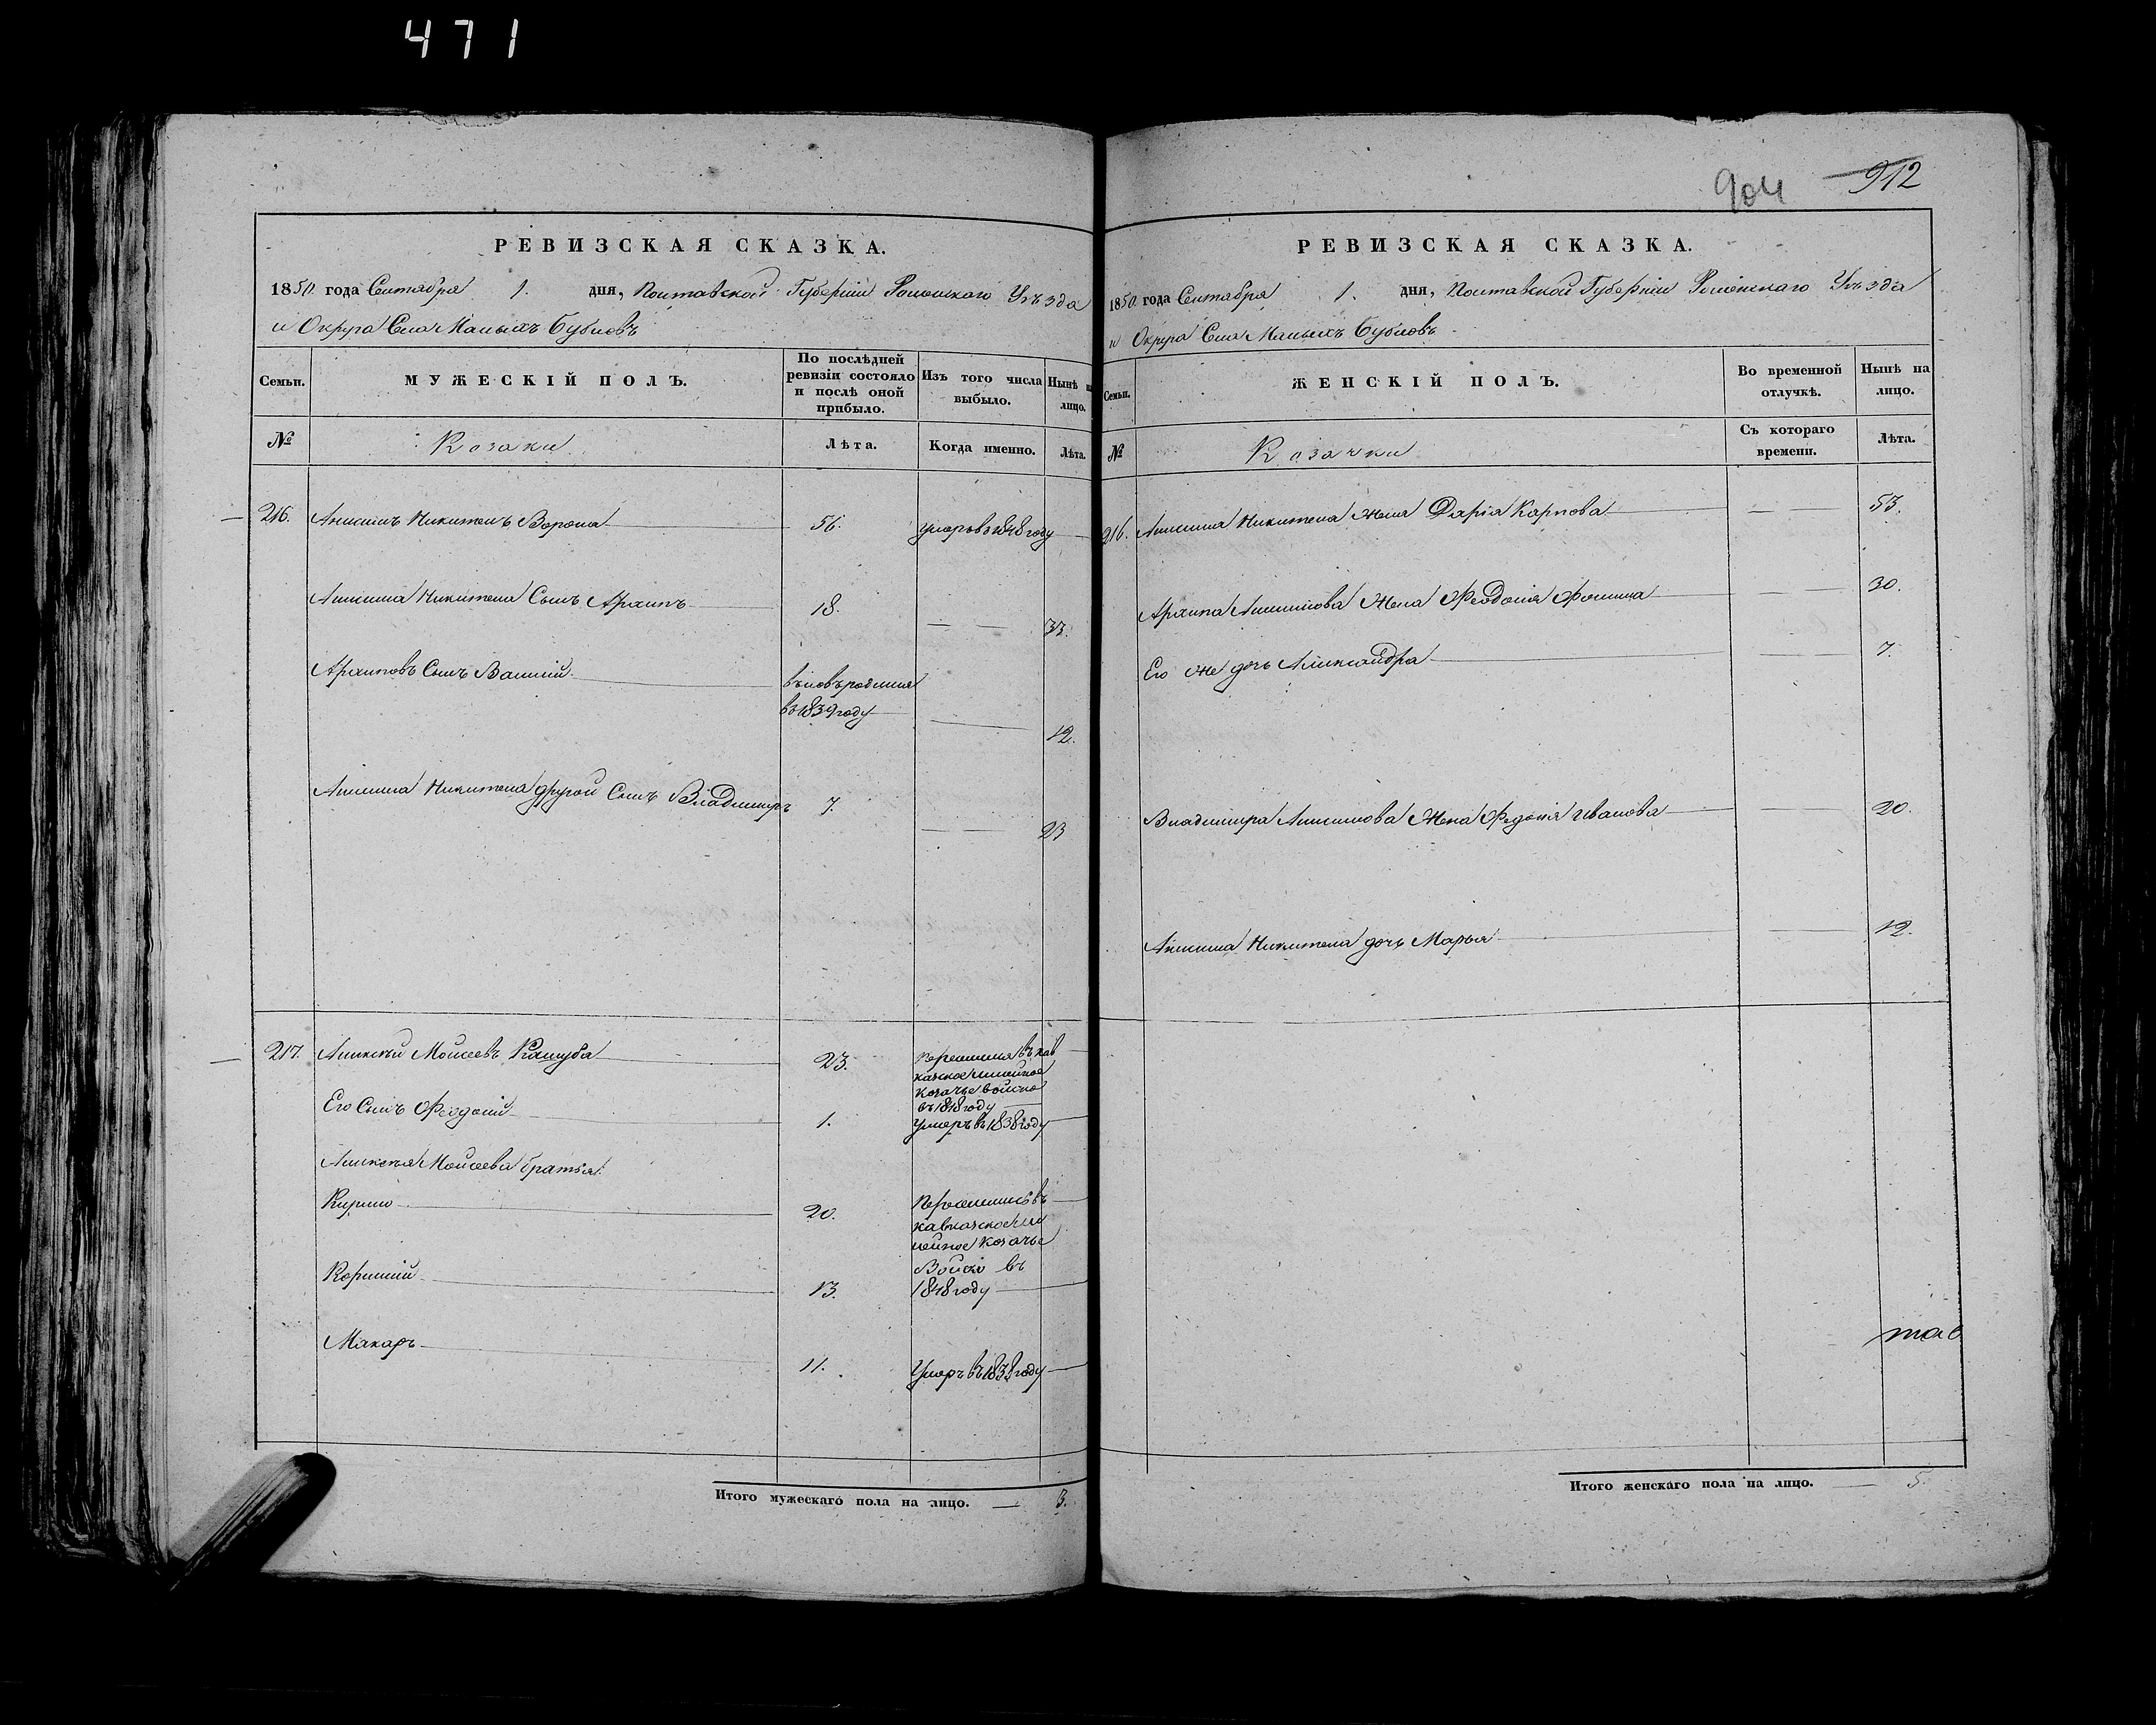 471
904 912
РЕВИЗСКАЯ СКАЗКА.
1850 года Сентября 1. дня, Полтавской Губерніи Роменскаго Уѣзда
и Округа Села Малыхъ Бубновъ
Семьи.
МУЖЕСКІЙ ПОЛЪ.
По послѣдней ревизіи состояло и послѣ оной прибыло.
Изъ того числа выбыло.
Нынѣ на лицо.
№
Козаки
Лѣта.
Когда именно.
Лѣта.
216. Анисимъ Никитенъ Ворона 56. умеръ в 1848 году
Анисима Никитена Сынъ Архипъ 18. 33.
Архиповъ Сынъ Василій
въ 1839 году
12.
Анисима Никитена другой Сынъ Владимиръ 7. 23
217. Алексѣй Моисеевъ Кашуба 23.
кавказское линейное
козачье войско
въ 1848 году
Его Сынъ Феодосій 1. Умеръ въ 1838 году
Алексѣя Моисеева братья:
Кирило 20. Переселился въ
кавказское ли
нейное козачье
Войско въ
Корнилій 13. 1848 году
Макаръ 11. Умеръ въ 1838 году
Итого мужескаго пола на лицо. 3.
РЕВИЗСКАЯ СКАЗКА.
1850 года Сентября 1. дня, Полтавской Губерніи Роменскаго Уѣзда
и Округа Села Малыхъ Бубновъ
Семьи.
ЖЕНСКІЙ ПОЛЪ.
Во временной отлучкѣ.
Нынѣ на лицо.
№
Козачки
Съ котораго времени.
Лѣта.
216. Анисима Никитена жена Дарія Карпова 53.
Архипа Анисимова Жена Феодосія Фомина 30.
Его же дочь Александра 7.
Владимира Анисимова Жена Федосія Иванова 20.
Анисима Никитена дочь Марья 12.
Итого женскаго пола на лицо. 5.